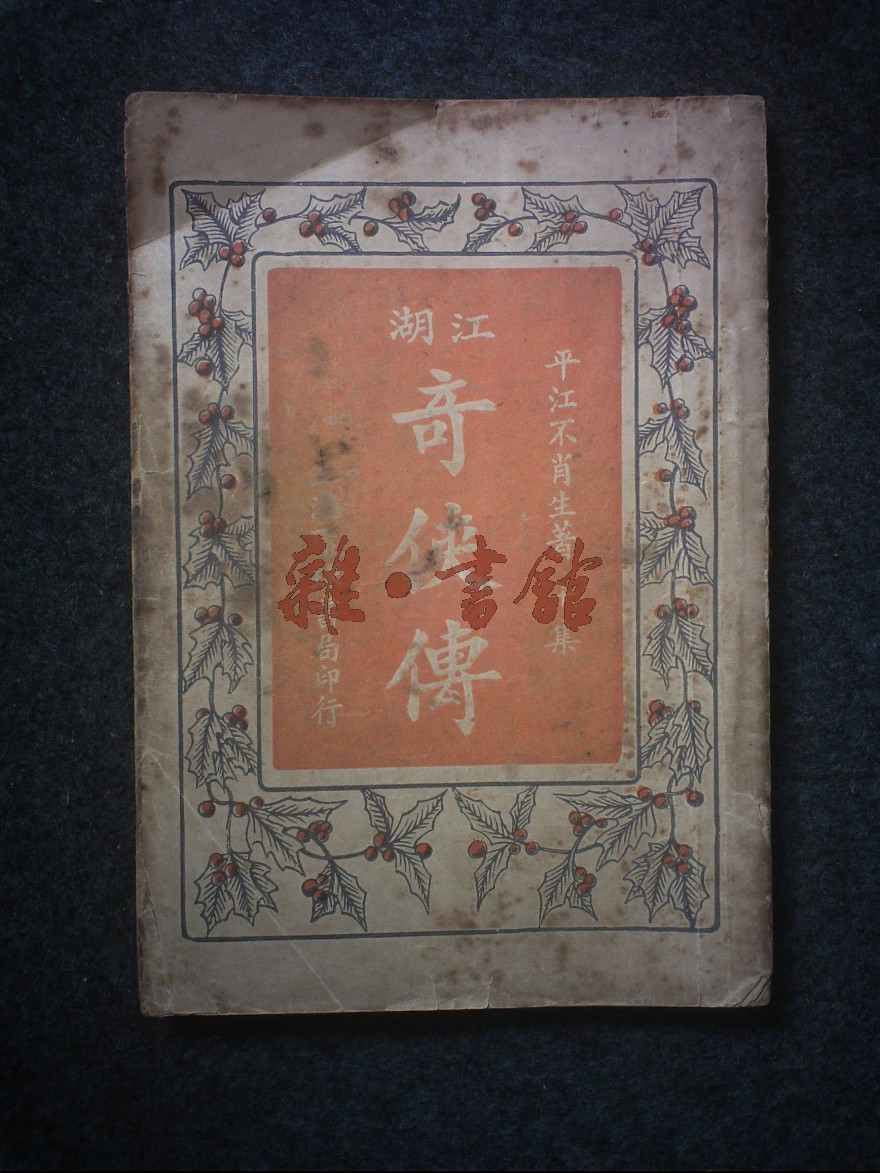 江湖
奇俠傳
平江不肖生著 集
上海 書局印行
雜·書館